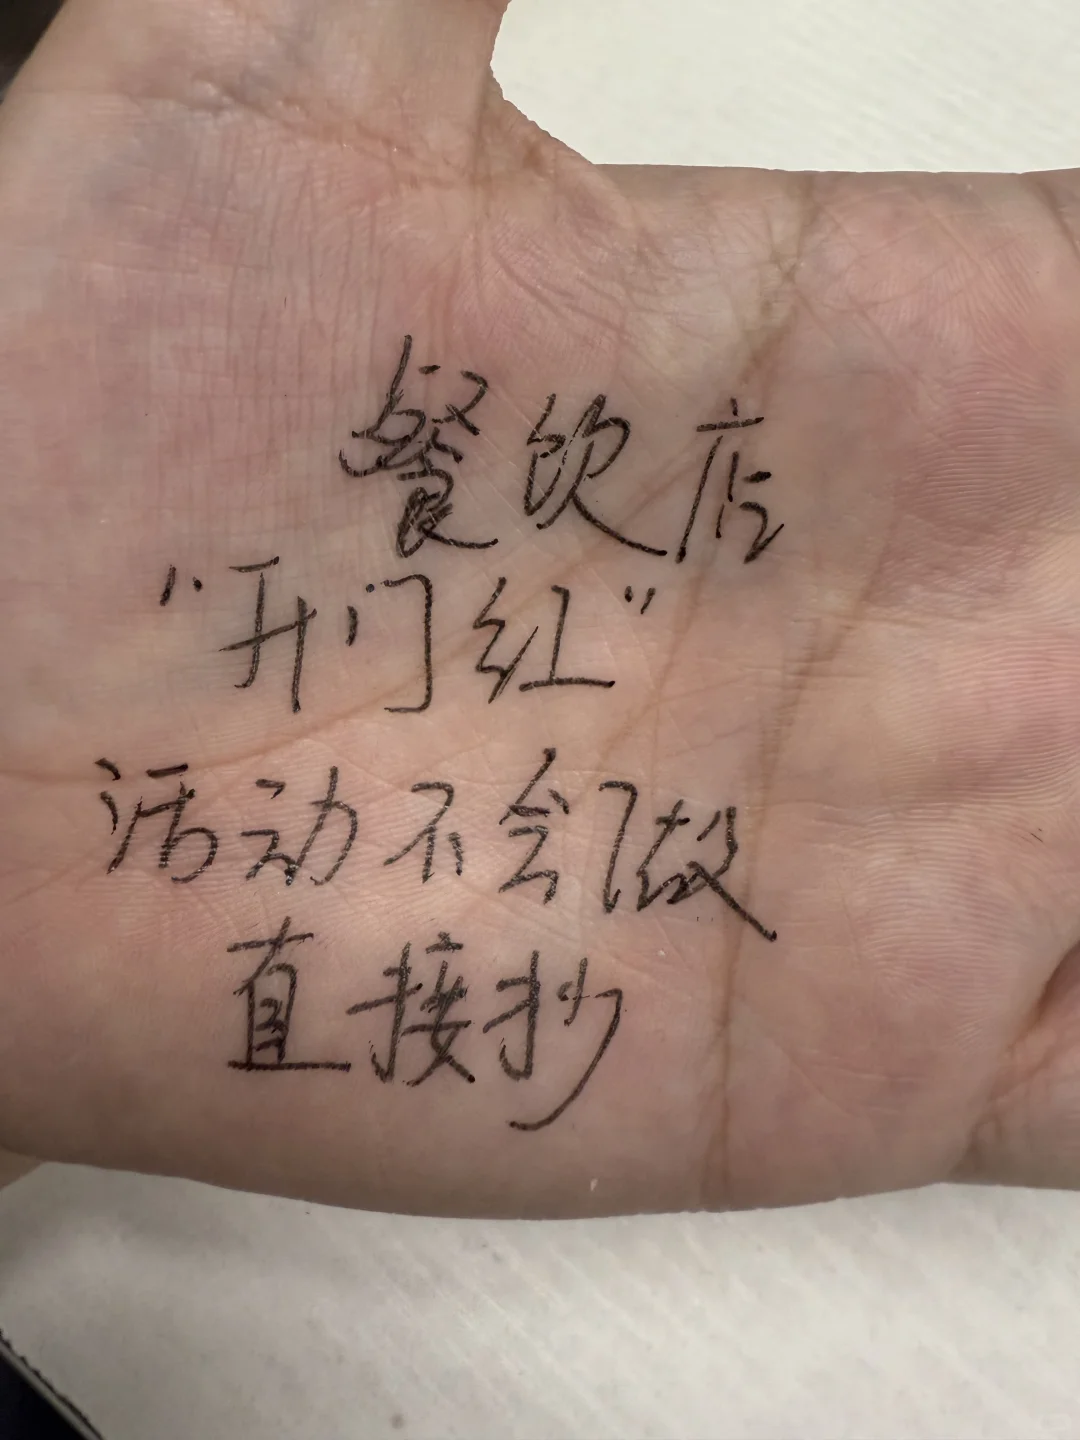 餐饮店
“开门红”
活动不会做
直接抄